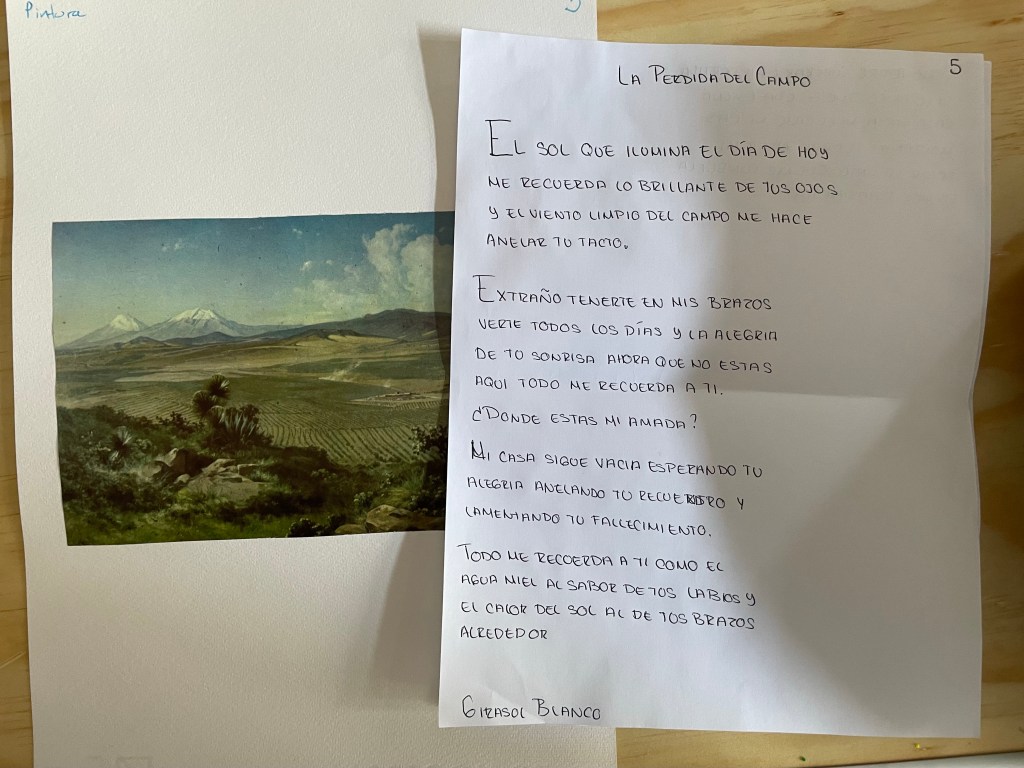 Pintura
5
LA PERDIDA DEL CAMPO
EL SOL QUE ILUMINA EL DÍA DE HOY
ME RECUERDA LO BRILLANTE DE TUS OJOS
Y EL VIENTO LIMPIO DEL CAMPO ME HACE
ANELAR TU TACTO.
EXTRAÑO TENERTE EN MIS BRAZOS
VERTE TODOS LOS DÍAS Y LA ALEGRIA
DE TU SONRISA AHORA QUE NO ESTAS
AQUI TODO ME RECUERDA A TI.
¿DONDE ESTAS MI AMADA?
MI CASA SIGUE VACIA ESPERANDO TU
ALEGRIA ANELANDO TU Y
LAMENTANDO TU FALLECIMIENTO.
TODO ME RECUERDA A TI COMO EL
AGUA MIEL AL SABOR DE TUS LABIOS Y
EL CALOR DEL SOL AL DE TUS BRAZOS
ALREDEDOR
GIRASOL BLANCO